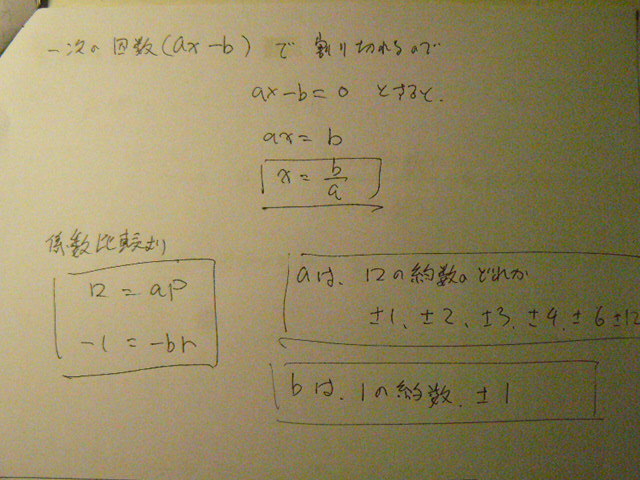 一次の因数(ax-b)で割り切れるので
ax-b=0 とすると.
ax=b
x=b/a
係数比較より
12=ap
-1=-br
aは、12の約数のどれか
±1、±2、±3、±4、±6 ±12
bは、1の約数、±1